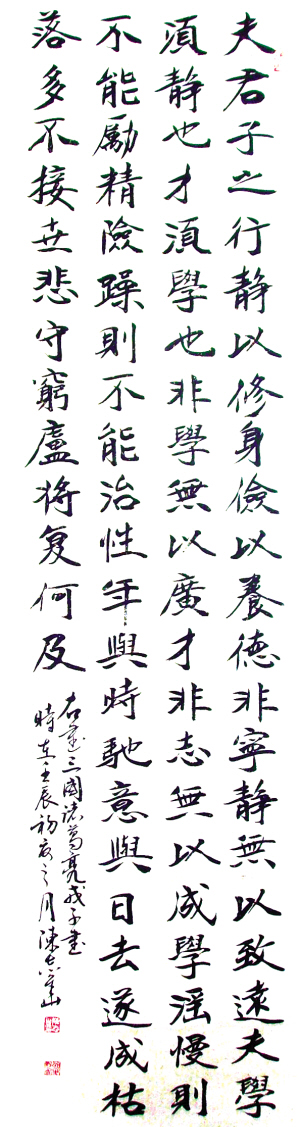 夫君子之行静以修身儉以養德非寧静無以致遠夫學
須静也才須學也非學無以廣才非志無以成學滛慢則
不能勵精險躁則不能治性年與時馳意與日去遂成枯
落多不接世悲守窮廬将复何及
右三國諸葛亮戒子書
時在壬辰初夏之月陳